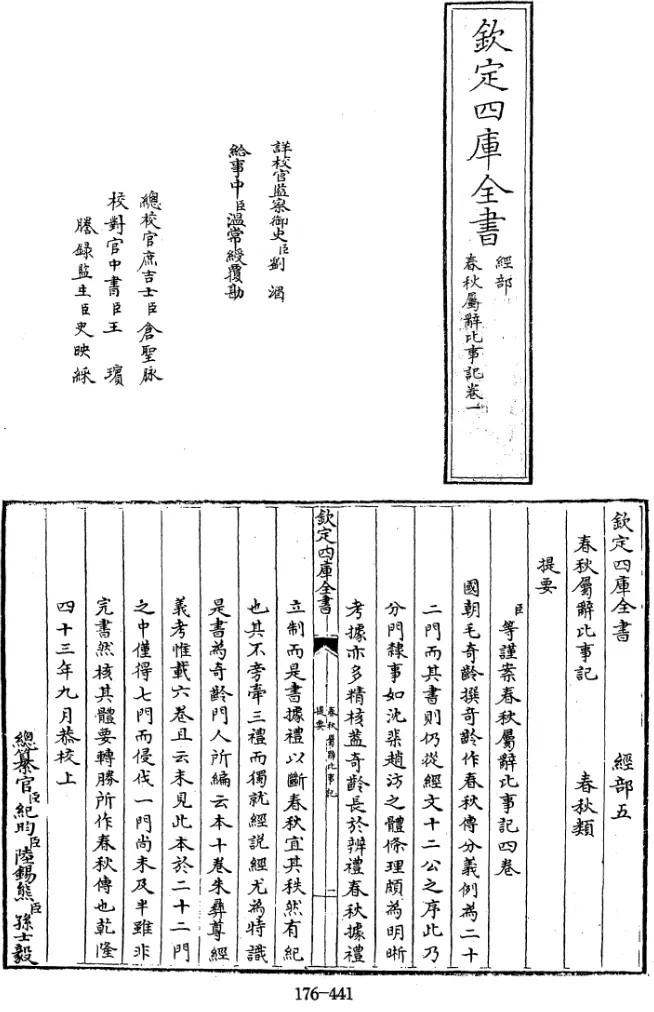 欽定四庫全書
經部
春秋屬辭比事記卷一
詳校官監察御史臣劉湄
給事中臣溫常綬覆勘
總校官庶吉士臣倉聖脉
校對官中書臣王璸
謄錄監生臣史映綵
欽定四庫全書 經部五
春秋屬辭比事記 春秋類
提要
臣等謹案春秋屬辭比事記四卷
國朝毛奇齡撰奇齡作春秋傳分義例為二十
二門而其書則仍從經文十二公之序此乃
分門隸事如沈棐趙汸之體條理頗為明晰
考據亦多精核蓋奇齡長於辨禮春秋據禮
欽定四庫全書
春秋屬辭比事記
提要
一
立制而是書據禮以斷春秋宜其秩然有紀
也其不旁牽三禮而獨就經說經尤為特識
是書為奇齡門人所編云本十卷朱彝尊經
義考惟載六卷且云未見此本於二十二門
之中僅得七門而侵伐一門尚未及半雖非
完書然核其體要轉勝所作春秋傳也乾隆
四十三年九月恭校上
總纂官臣紀昀臣陸錫熊臣孫士毅
176-441